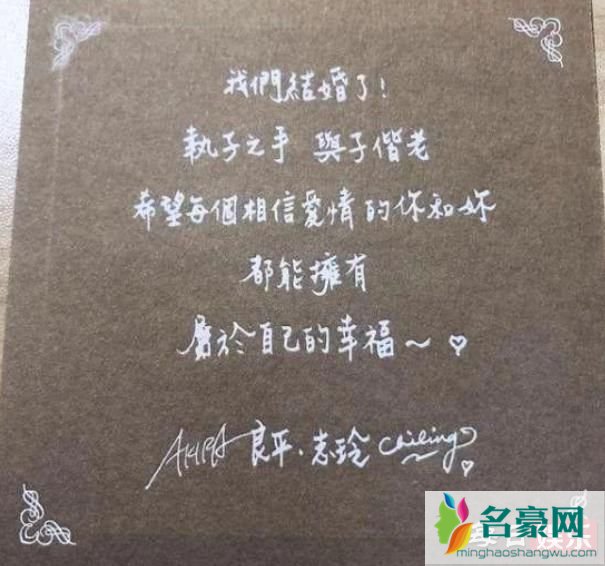 我們結婚了！
執子之手 與子偕老
希望每個相信愛情的你和妳
都能擁有
屬於自己的幸福～♡
AKIRA 良平．志玲 Chiling ♡
名豪网
minghaoshangwu.com